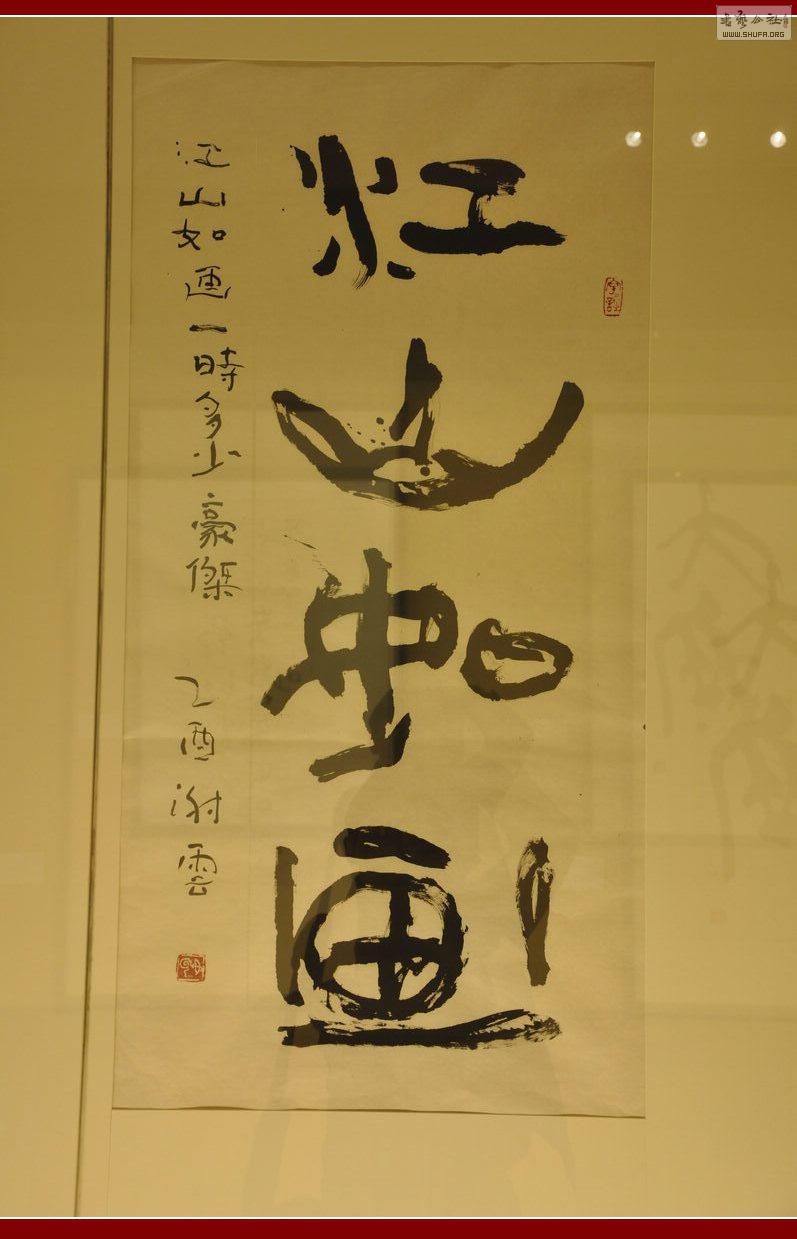 江山如画
江山如画一時多少豪傑 乙酉謝雲
書藝公社
WWW.SHUFA.ORG